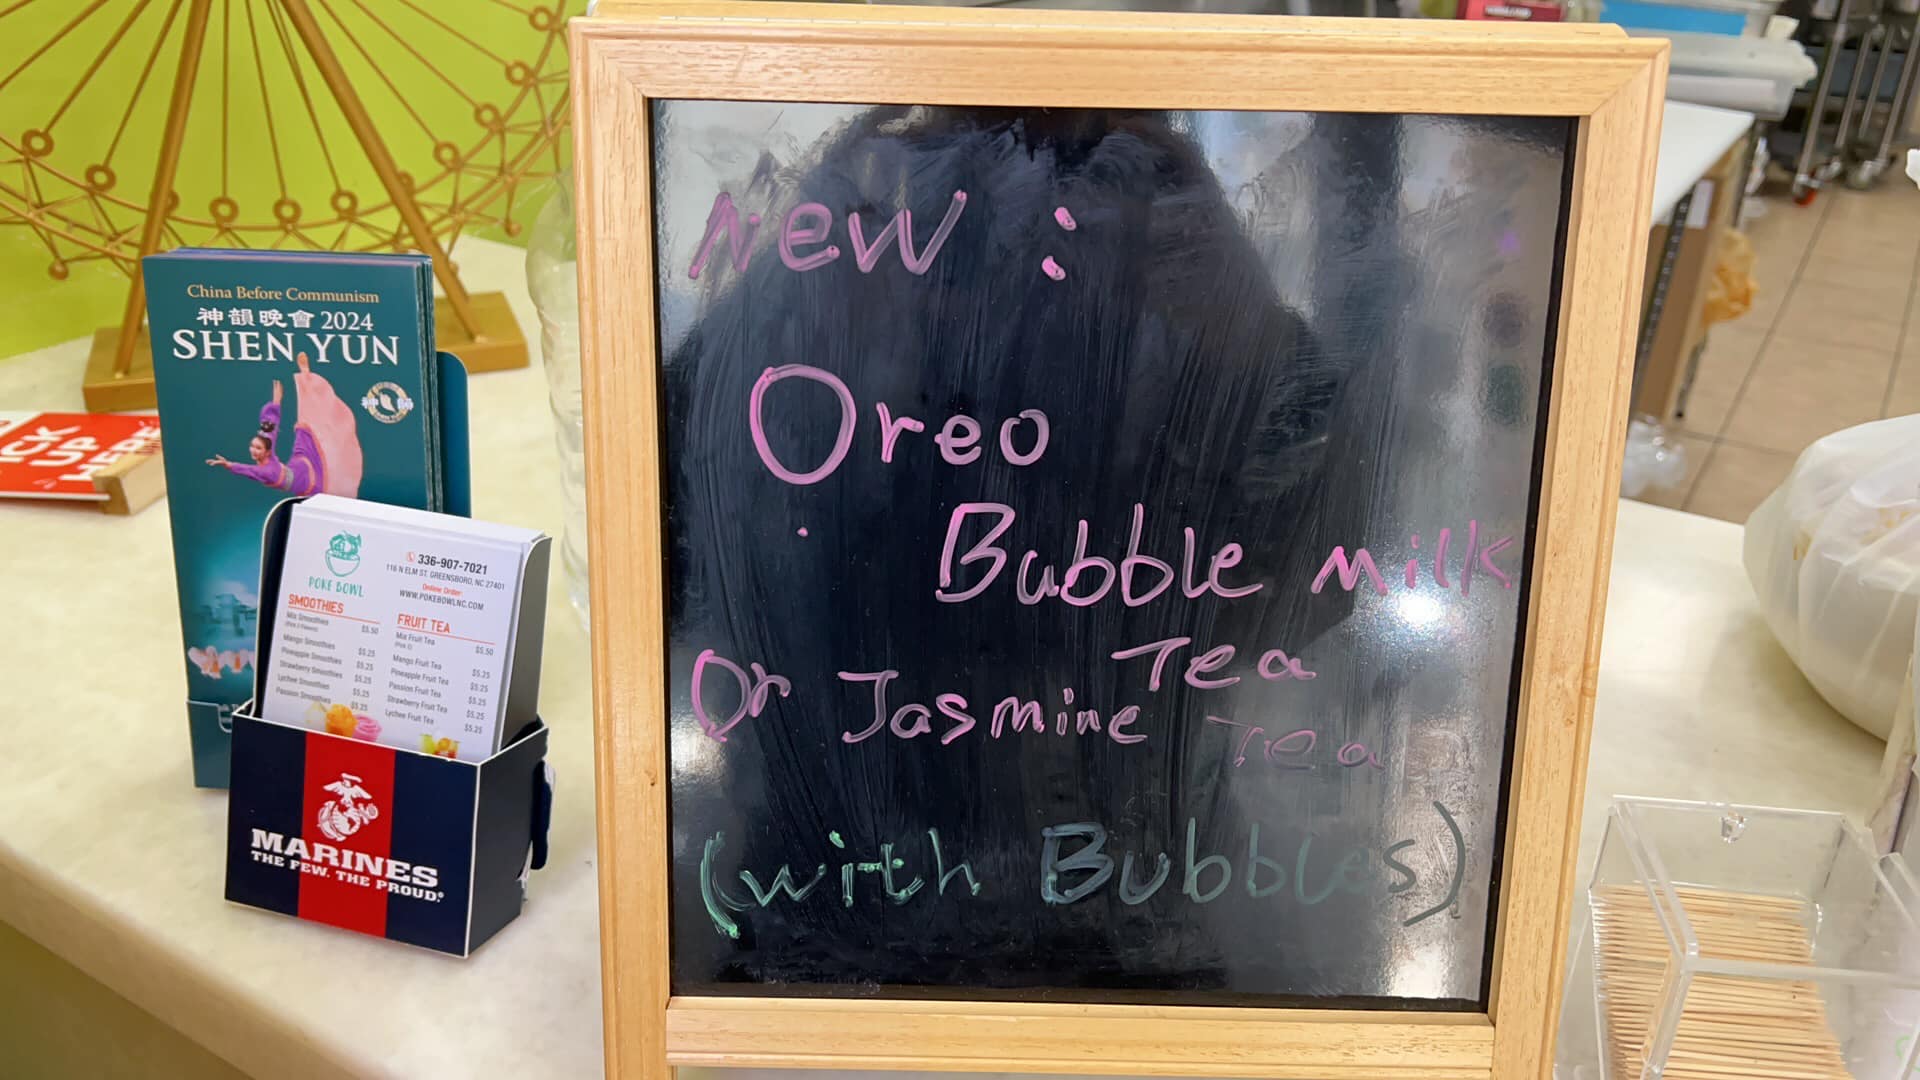 New :
Oreo
Bubble milk
Tea
Or Jasmine Tea
(with Bubbles)
China Before Communism
神韻晚會 2024
SHEN YUN
PICK
UP
HERE
POKE BOWL
336-907-7021
116 N ELM ST. GREENSBORO, NC 27401
Online Order
WWW.POKEBOWLNC.COM
SMOOTHIES
Mix Smoothies $5.50
(Pick 2 Flavors)
Mango Smoothies $5.25
Pineapple Smoothies $5.25
Strawberry Smoothies $5.25
Lychee Smoothies $5.25
Passion Smoothies $5.25
FRUIT TEA
Mix Fruit Tea $5.50
Mango Fruit Tea $5.25
Pineapple Fruit Tea $5.25
Passion Fruit Tea $5.25
Strawberry Fruit Tea $5.25
Lychee Fruit Tea $5.25
MARINES
THE FEW. THE PROUD.®
KIRKLAND